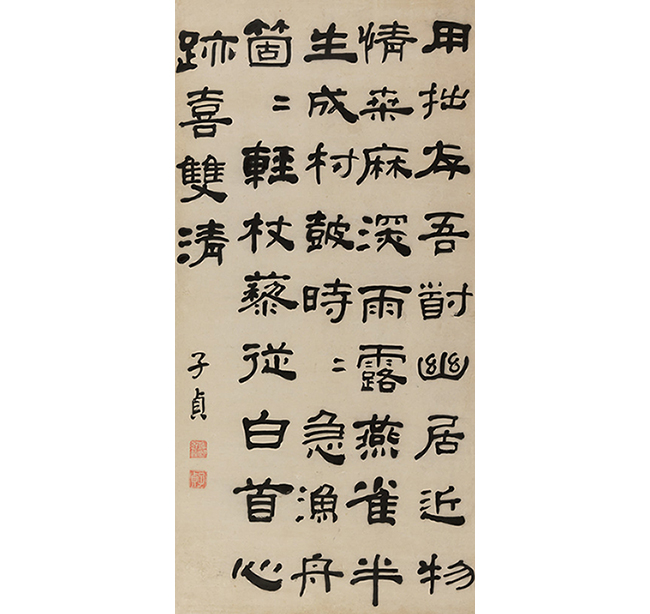 用拙存吾道幽居近物
情桒麻深雨露燕雀半
生成村鼓時〻急漁舟
箇〻輕杖藜従白首心
跡喜雙清
子貞